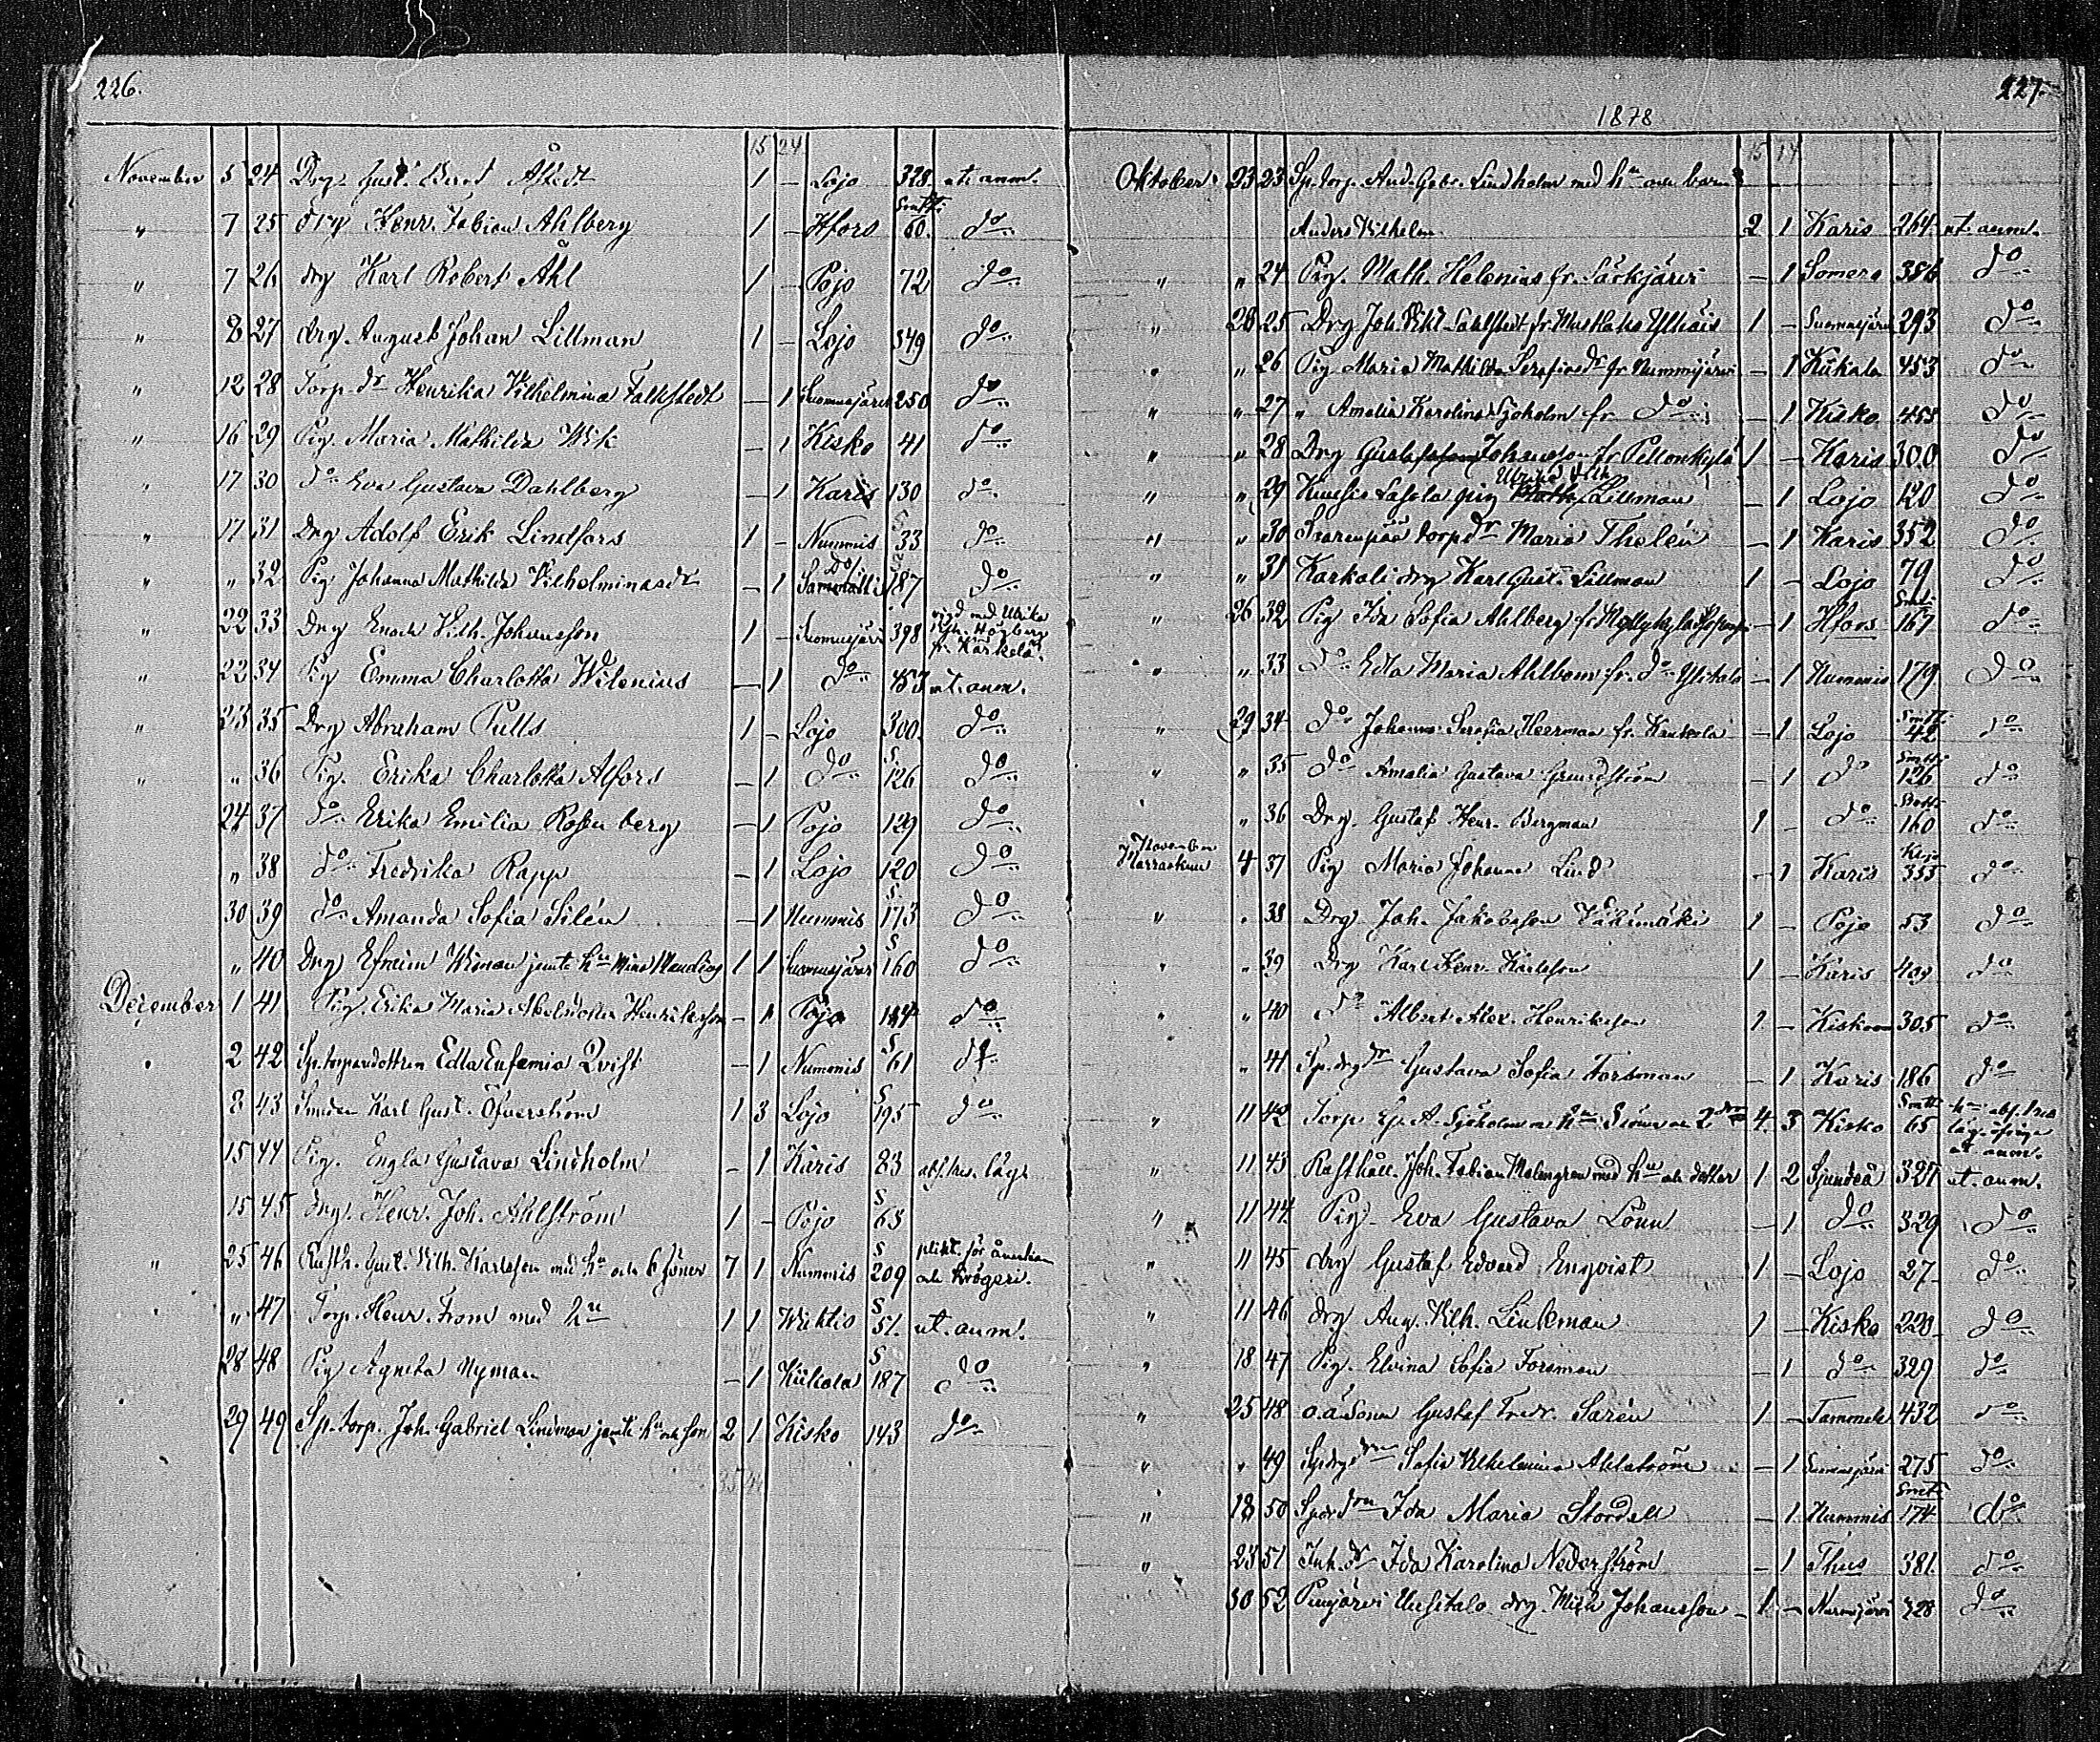 226.
15 24
November 5 24 Drg. Gust. Åstedt 1 – Lojo 328 ut. anm.
" 7 25 drg Henr. Fabian Ahlberg 1 – Hfors Smtt. 60. do
" 7 26 drg Karl Robert Åhl 1 – Pojo 72 do
" 8 27 drg. August Johan Lillman 1 – Lojo 349 do
" 12 28 Torp. dr Henrika Vilhelmina Falkstedt – 1 Suomusjärvi 250 do
" 16 29 Pig. Maria Mathilda Wik – 1 Kisko 41 do
" 17 30 do Eva Gustava Dahlberg – 1 Karis 130 do
" 17 31 Drg Adolf Erik Lindfors 1 – Nummis S 33 do
" " 32 Pig Johanna Mathilda Vilhelminasdr – 1 Sammatti S 187 do
" 22 33 Drg Enok Vilh. Johansson 1 – Suomusjärvi 398 vigd med Ulrika Högberg fr. Karkela.
" 22 34 Pig Emma Charlotta Wilenius – 1 do 453 ut. anm.
" 23 35 Drg Abraham Pulls 1 – Lojo 300. do
" " 36 Pig. Erika Charlotta Alfors – 1 do S. 126 do
24 37 do Erika Emilia Rosenberg – 1 Pojo 129 do
" 38 do Fredrika Rapp – 1 Lojo 120 do
30 39 do Amanda Sofia Silén – 1 Nummis S 173 do
" 40 Drg Efraim Wiman jemte hu Mina 1 1 Suomusjärvi S 160 do
December 1 41 Pig. Erika Maria Abelsdotter Henriksson – 1 Pojo 144 do
2 42 Sp. torparedottren Edla Eufemia Qvist – 1 Nummis S 61 do
8 43 Smeden Karl Gust. Öfverström 1 3 Lojo S 195 do
15 44 Pig. Engla Gustava Lindholm – 1 Karis 83 abs. hu. läg.
15 45 drg. Henr. Joh. Ahlström 1 – Pojo S 63
" 25 46 Rusth. Gust. Vilh. Karlsson med hu och 6 söner 7 1 Nummis S 209 plikt. för och krögeri.
" 47 Torp. Henr. From med hu 1 1 Wichtis S 51. ut. anm.
28 48 Pig Agneta Nyman – 1 Kiikala S 187 do
29 49 Sp. torp. Joh. Gabriel Lindman jemte hu och son 2 1 Kisko 143 do
227.
1878
15 17
Oktober 23 23 Sp. torp. And. Gabr. Lindholm med hu och barn
Anders Vilhelm 2 1 Karis 264 ut. anm.
" " 24 Pig. Math. Helenius fr. Särkjärvi – 1 Somero 386 do
" 28 25 Drg Joh. Vihl Sahlstedt fr. 1 – Suomusjärvi 293 do
" " 26 Pig Maria Mathilda Serafiasdr fr Nummijärvi – 1 Kiikala 453 do
" " 27 " Amalia Karolina Sjöholm fr do – 1 Kisko 455 do
" " 28 Drg Johansson fr Pellonkylä 1 – Karis 300 do
Ulrika Vilh.
" " 29 Lasola pig Lillman – 1 Lojo 120 do
" " 30 torp dr Maria Thelén – 1 Karis 352 do
" " 31 Karkali drg Karl Gust. Lillman 1 – Lojo 79 do
" 26 32 Pig Ida Sofia Ahlberg fr Myllykylä – 1 Hfors Smtt. 167 do
" " 33 do Edla Maria Ahlbom fr. do Ylitalo – 1 Nummis 179 do
" 29 34 do Johanna Serafia Heerman fr. – 1 Lojo Smtt. 42 do
" " 35 do Amalia Gustava Grundström – 1 do Smtt. 126 do
" 36 Drg. Gustaf Henr. Bergman 1 – do 160 do
November 4 37 Pig Maria Johanna Lind – 1 Karis 355 do
" " 38 Drg Joh. Jakobsson Vähämäki 1 – Pojo 53 do
" " 39 Drg Karl Henr. Karlsson 1 – Karis 409 do
" " 40 do Albert Alex. Henriksson 1 – Kisko 305 do
" 41 Sp. drg dr Gustava Sofia Forsman – 1 Karis 186 do
" 11 42 Torp. A. Sjöholm m hu Söner o 2 4. 3 Kisko Smtt. 65 ut. anm.
" 11 43 Rusthåll. Joh. Fabian Malmgren med hu och dotter 1 2 Sjundeå 327 ut. anm.
" 11 44 Pig. Eva Gustava Lönn – 1 do 329 do
" 11 45 drg Gustaf Edvard Enqvist 1 – Lojo 27 do
" 11 46 drg Aug. Vilh. Linkman 1 – Kisko 220 do
" 18 47 Pig. Elvina Sofia Forsman – 1 do 329 do
" 25 48 o. ä. Sonen Gustaf Fredr. Sarén 1 – Tammela 432 do
" " 49 Sp. drg Sofia Vilhelmina Ahlström – 1 Suomusjärvi 275 do
" 18 50 Ida Maria Stordell – 1 Nummis Smtt. 174 do
" 23 51 Inh. dr Ida Karolina Nederström – 1 Thus 381. do
30 52 Uusitalo drg. Johansson 1 – Nurmijärvi 728 do